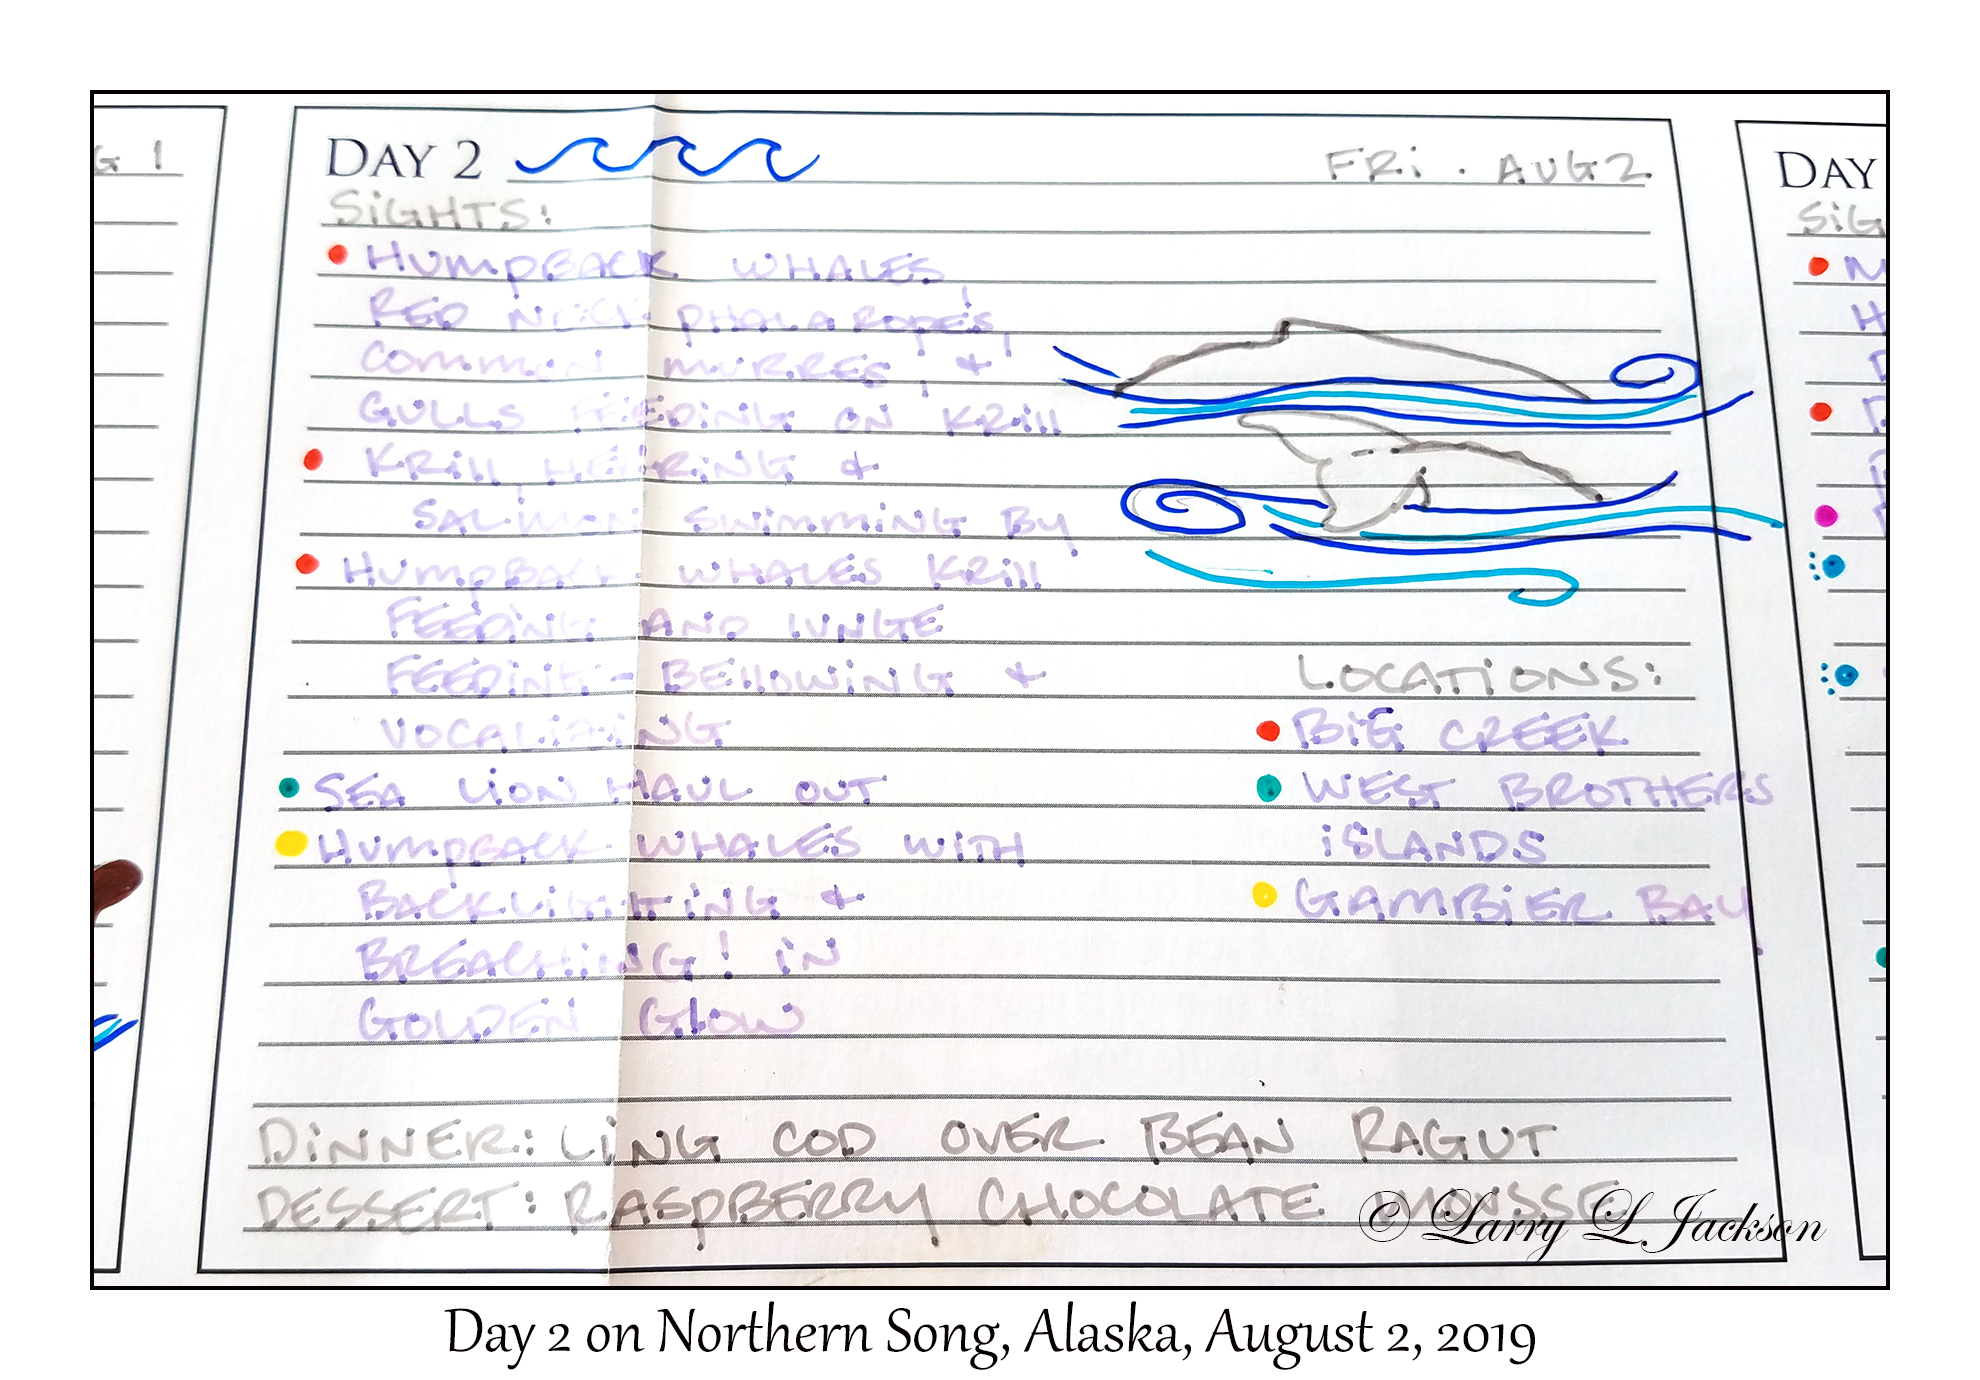 G 1
DAY 2
FRi. AUG 2
SiGHTS:
HUMPBACK WHALES!
RED NECK PHALAROPES,
COMMON MURRES, &
GULLS FEEDiNG ON KRill
KRill, HERRiNG &
SALMON SWiMMiNG BY
HUMPBACK WHALES KRill
FEEDiNG AND lUNGE
FEEDiNG - BEllOWiNG &
VOCALiZiNG
SEA LiON HAUL OUT
HUMPBACK WHALES WiTH
BACKLiGHTiNG &
BREACHiNG! iN
GOLDEN GlOW
LOCATiONS:
BiG CREEK
WEST BROTHERS
iSLANDS
GAMBiER BAY
DiNNER: LiNG COD OVER BEAN RAGUT
DESSERT: RASPBERRY CHOCOLATE MOUSSE
DAY
SiG
© Larry L Jackson
Day 2 on Northern Song, Alaska, August 2, 2019